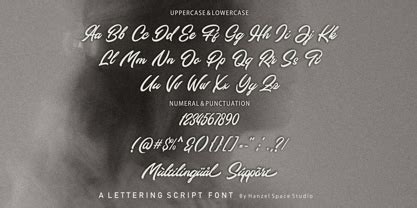 UPPERCASE & LOWERCASE
Aa Bb Cc Dd Ee Ff Gg Hh Ii Jj Kk
Ll Mm Nn Oo Pp Qq Rr Ss Tt
Uu Vv Ww Xx Yy Zz
NUMERAL & PUNCTUATION
1234567890
(@#$%^&()[]+-":.,?/
Multilingüál Süppört
A LETTERING SCRIPT FONT By Hanzel Space Studio